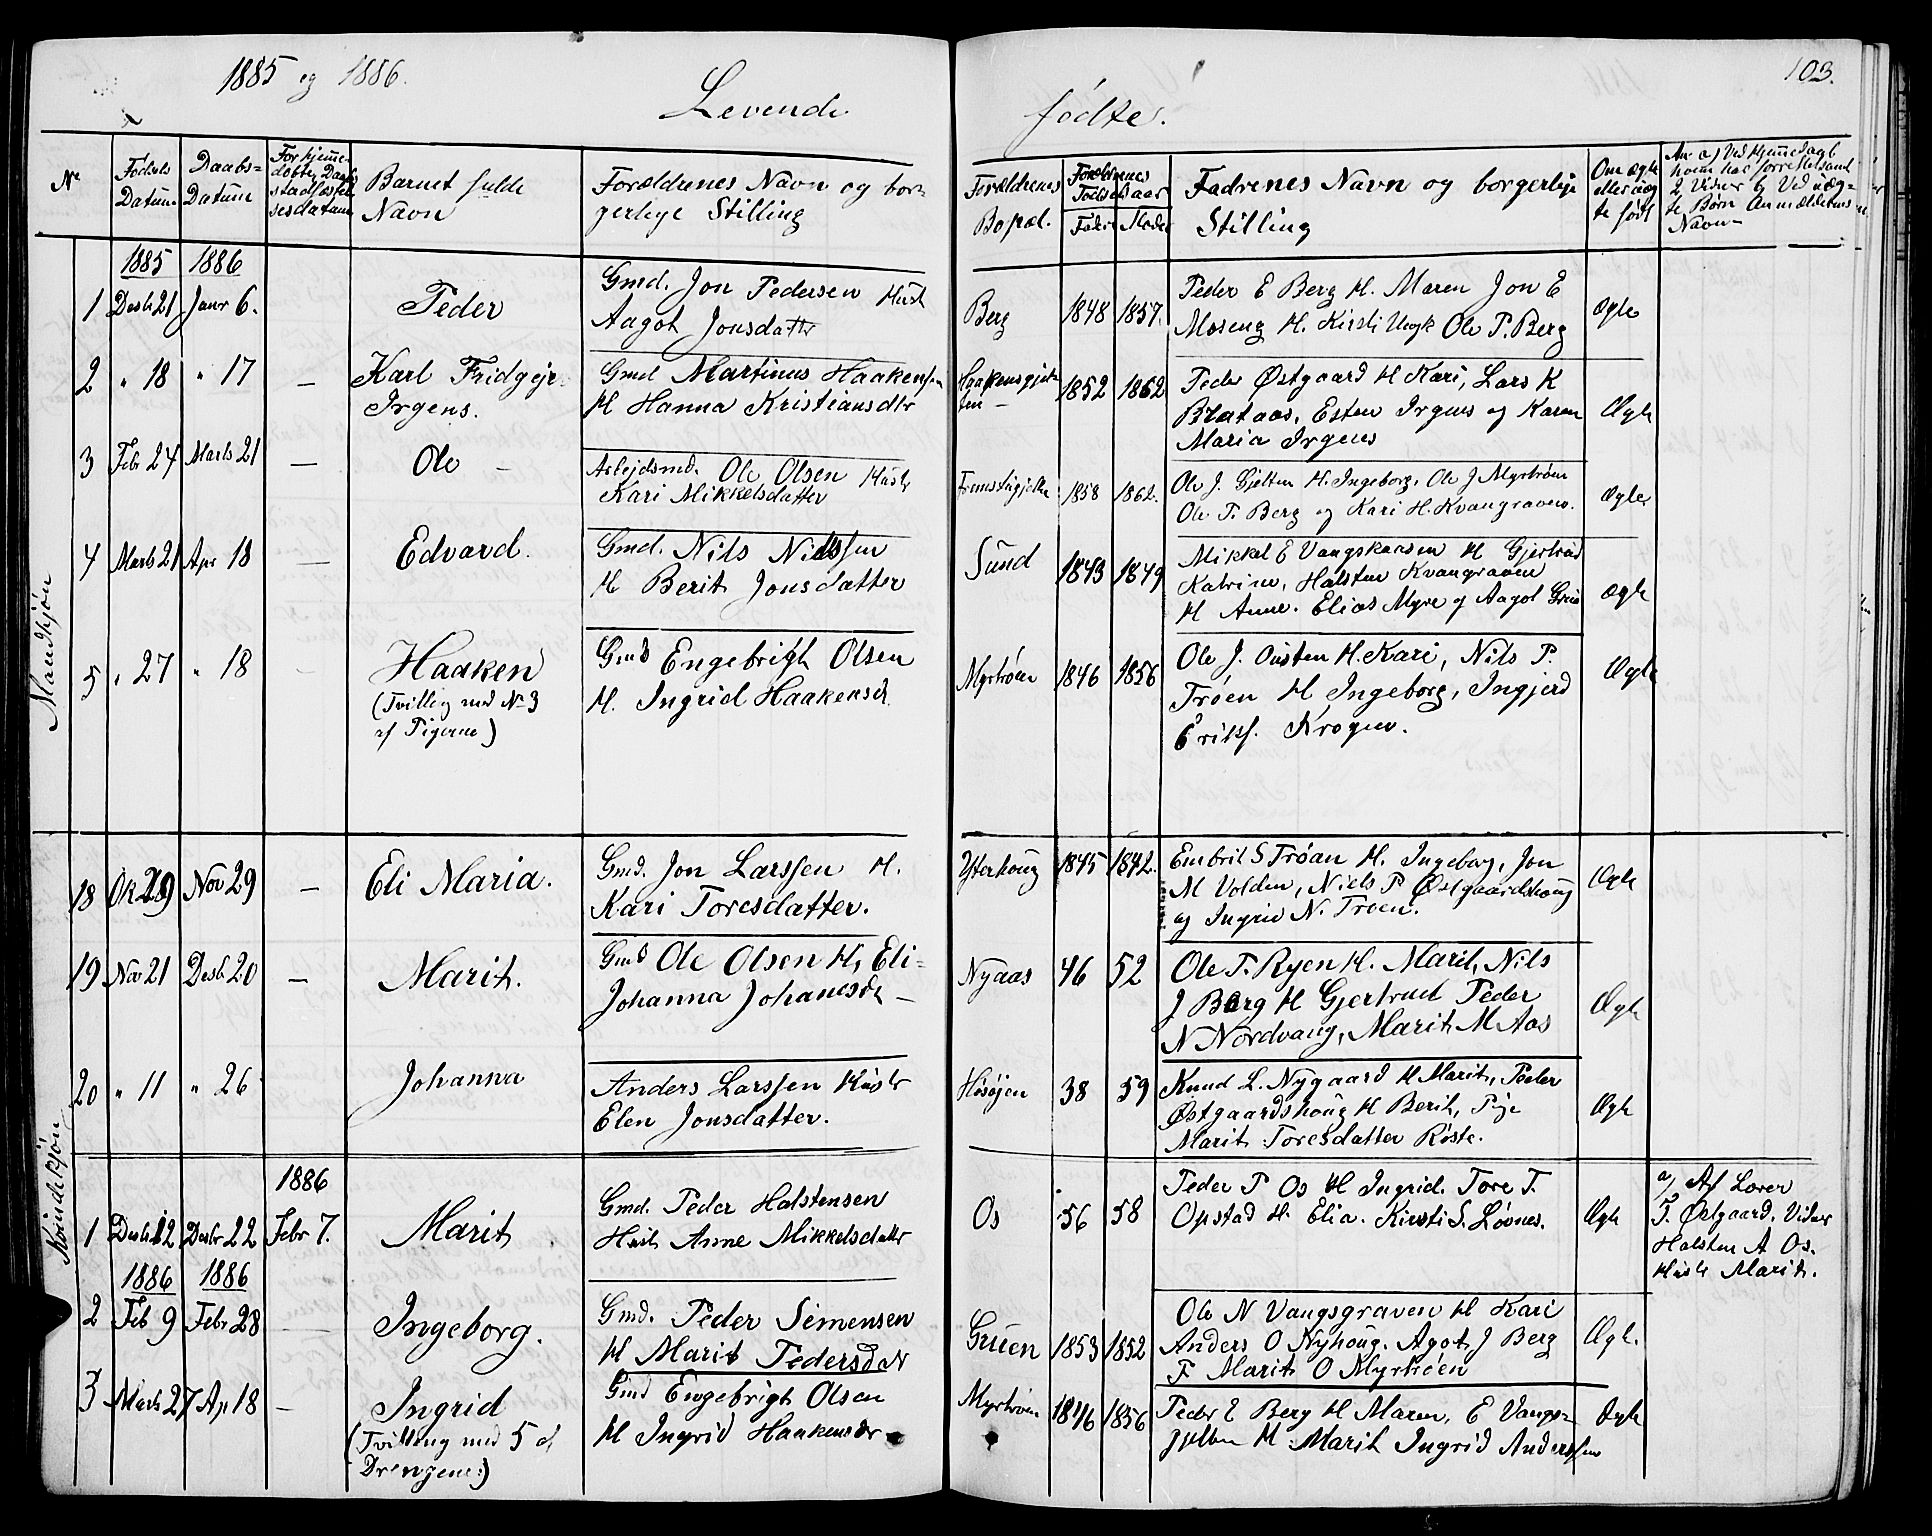 1885 og 1886.
Levende
fødte.
103.
No
Fødsels Datum
Daabs-Datum
Barnet fulde Navn
Forældrenes Navn og borgerlige Stilling
Forældrenes Bopæl.
Forældrenes Fødselsaar
Fader
Moder
Fadrenes Navn og borgerlige Stilling
Om ægte eller uægte født
Mandkjøn
1885 1886
1 Desb 21 Janr 6.
Peder
Gmd. Jon Pedersen Hust
Aagot Jonsdattr
Berg 1848 1857.
Peder E Berg H. Maren Jon E
Moseng H. Kirsti Ungk Ole P. Berg
Ægte
2 " 18 " 17 —
Karl Fridgejr
Irgens.
Gmd Martinus Haakensen
H Hanna Kristiansdtr
1852 1862
Peder Østgaard H Kari, Lars K
Brataas, Esten Irgens og Karen
Maria Irgens
Ægte
3 Feb 24 Marts 21 —
Ole —
Arbejdsmd. Ole Olsen Hustr
Kari Mikkelsdatter
1858 1862.
Ole J. Gjelten H. Ingeborg, Ole J Myrtrøen
Ole P. Berg og Kari H. Kvangraven.
Ægte
4 Marts 21 Apr 18 —
Edvard.
Gmd. Nils Nilssen
H Berit Jonsdatter
Sund 1843 1849
Mikkel E Vangskaasen H Gjertrud
Katrine, Halsten Kvangraven
H Anne. Elias Myre og Aagot
Ægte
5 " 27 " 18 —
Haaken
(Tvilling med No 3
af Pigerne)
Gmd Engebrigt Olsen
H. Ingrid Haakensd.
Myrtrøen 1846 1856
Ole J. Ousten H. Kari, Nils P.
Trøen H Ingeborg, Ingjerd
Eriks. Krogen.
Ægte
18 Ok 29 Nov 29 —
Eli Maria.
Gmd. Jon Larssen H.
Kari Toresdatter.
Ytterhoug 1845 1842.
Embrit S Trøan H. Ingeborg, Jon
M Volden, Niels P Østgaardshoug
og Ingrid N. Troen.
Ægte
19 Nov 21 Desb 20 —
Marit.
Gmd Ole Olsen H, Eli-
Johanna Johanesdt —
Nyaas 46 52
Ole T. Ryen H. Marit, Nils
J Berg H Gjertrud Peder
N Nordvang, Marit M Aas
Ægte
20 " 11 " 26
Johanna
Anders Larssen Hustr
Elen Jonsdatter.
Høsøjen 38 59
Knud L. Nygaard H Marit, Peder
Østgaardshoug H Berit, Pige
Marit Toresdatter Røste.
Ægte
Kvindekjøn
1886
1 Desb 12 Desbr 22 Febr 7.
Marit
Gmd. Peder Halstensen
Hust Anne Mikkelsdattr
Os 56 58
Peder P Os H Ingrid. Tore T.
Opstad H. Elia. Kirsti S. Løvnes.
Ægte
a) Af Lærer
T. Østgaard. Vidner
Halsten A Os.
Hustr Marit.
1886 1886
2 Feb 9 Febr 28 —
Ingeborg.
Gmd. Peder Simensen
H Marit Pedersdatr
Gruen 1853 1852
Ole N Vangsgraven H Kari
Anders O Nyhoug. Agot J Berg
F Marit O Myrtrøen
Ægte.
3 Marts 27 Ap 18 —
Ingrid
(Tvilling med 5 af
Drengene)
Gmd Engebrigt Olsen
H Ingrid Haakensdr
Myrtrøen 1846 1856
Peder E Berg H Maren, E Vangs-
gjelten H Marit Ingrid Anderssen
Ægte